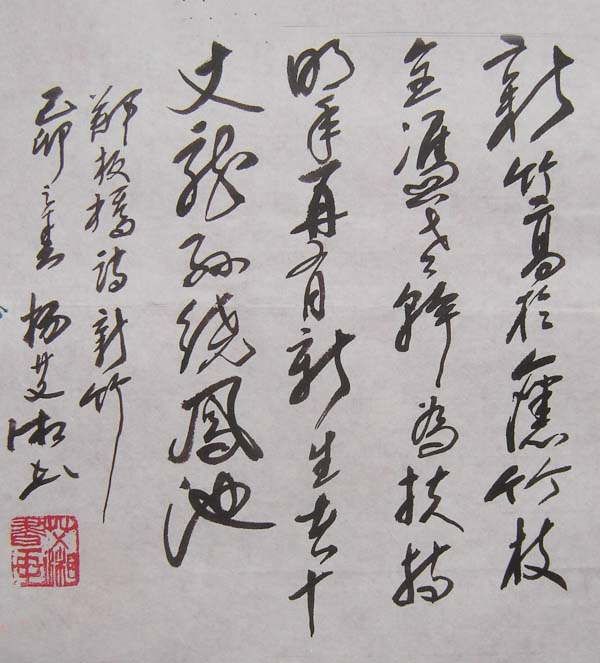 新竹高於舊竹枝
全憑老幹為扶持
明年再有新生者十
丈龍孫繞鳳池
鄭板橋詩新竹
己卯之春 杨艾湘书
艾湘書画